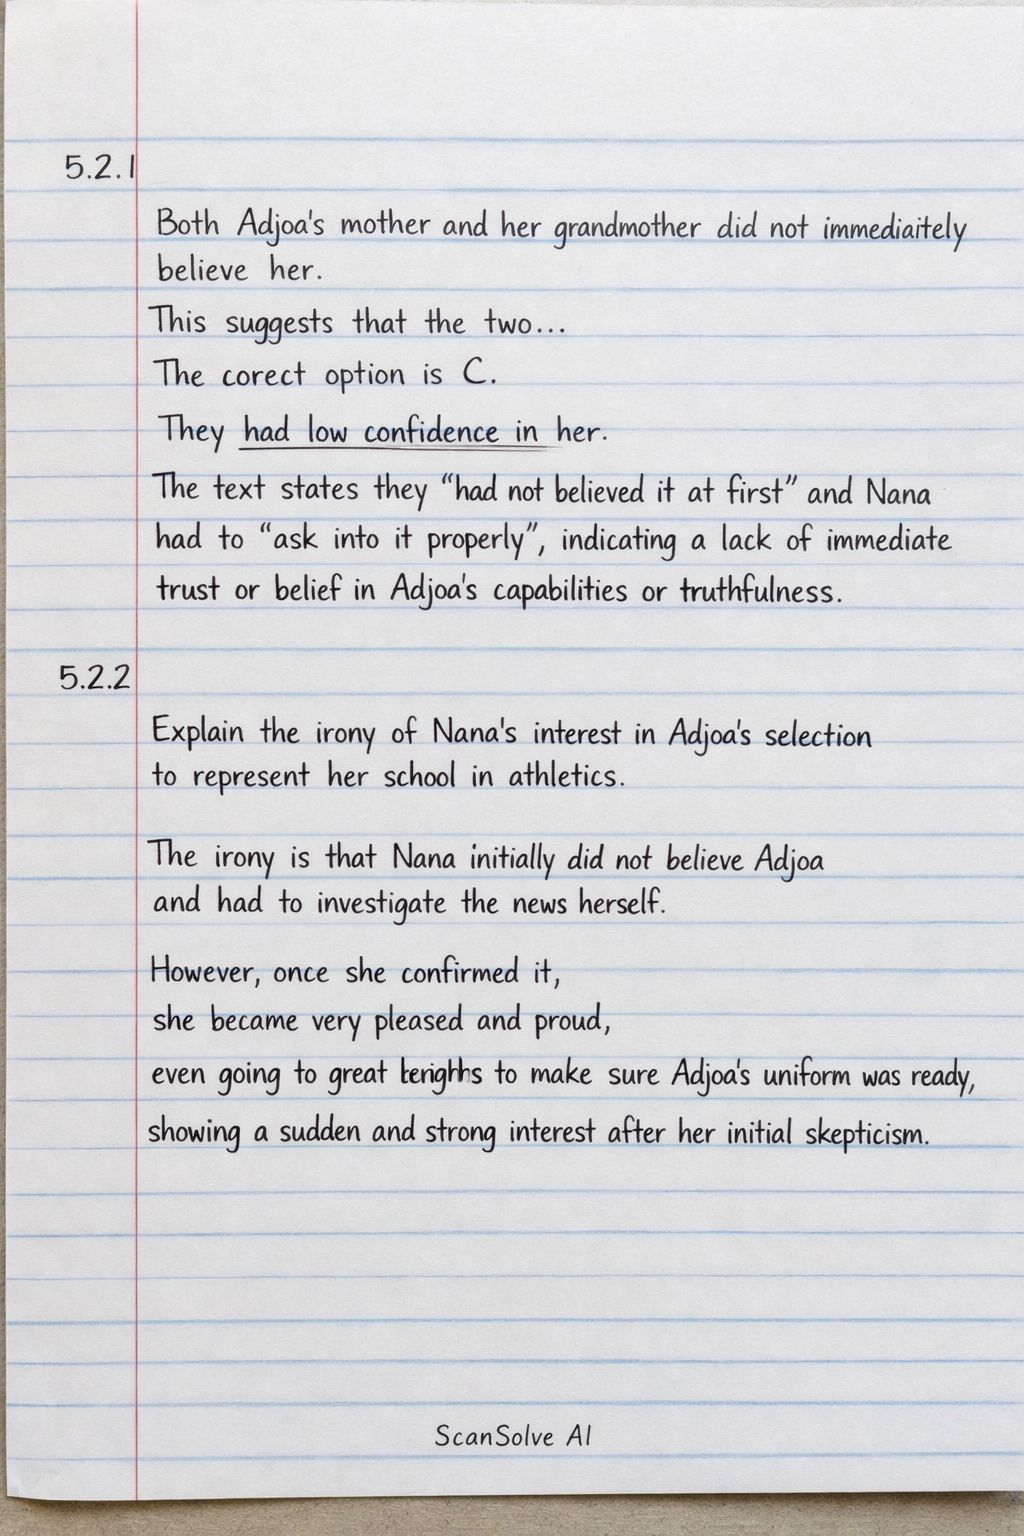 5.2.1
Both Adjoa's mother and her grandmother did not immediaitely
believe her.
This suggests that the two...
The corect option is C.
They had low confidence in her.
The text states they "had not believed it at first" and Nana
had to "ask into it properly", indicating a lack of immediate
trust or belief in Adjoa's capabilities or truthfulness.
5.2.2
Explain the irony of Nana's interest in Adjoa's selection
to represent her school in athletics.
The irony is that Nana initially did not believe Adjoa
and had to investigate the news herself.
However, once she confirmed it,
she became very pleased and proud,
even going to great to make sure Adjoa's uniform was ready,
showing a sudden and strong interest after her initial skepticism.
ScanSolve AI